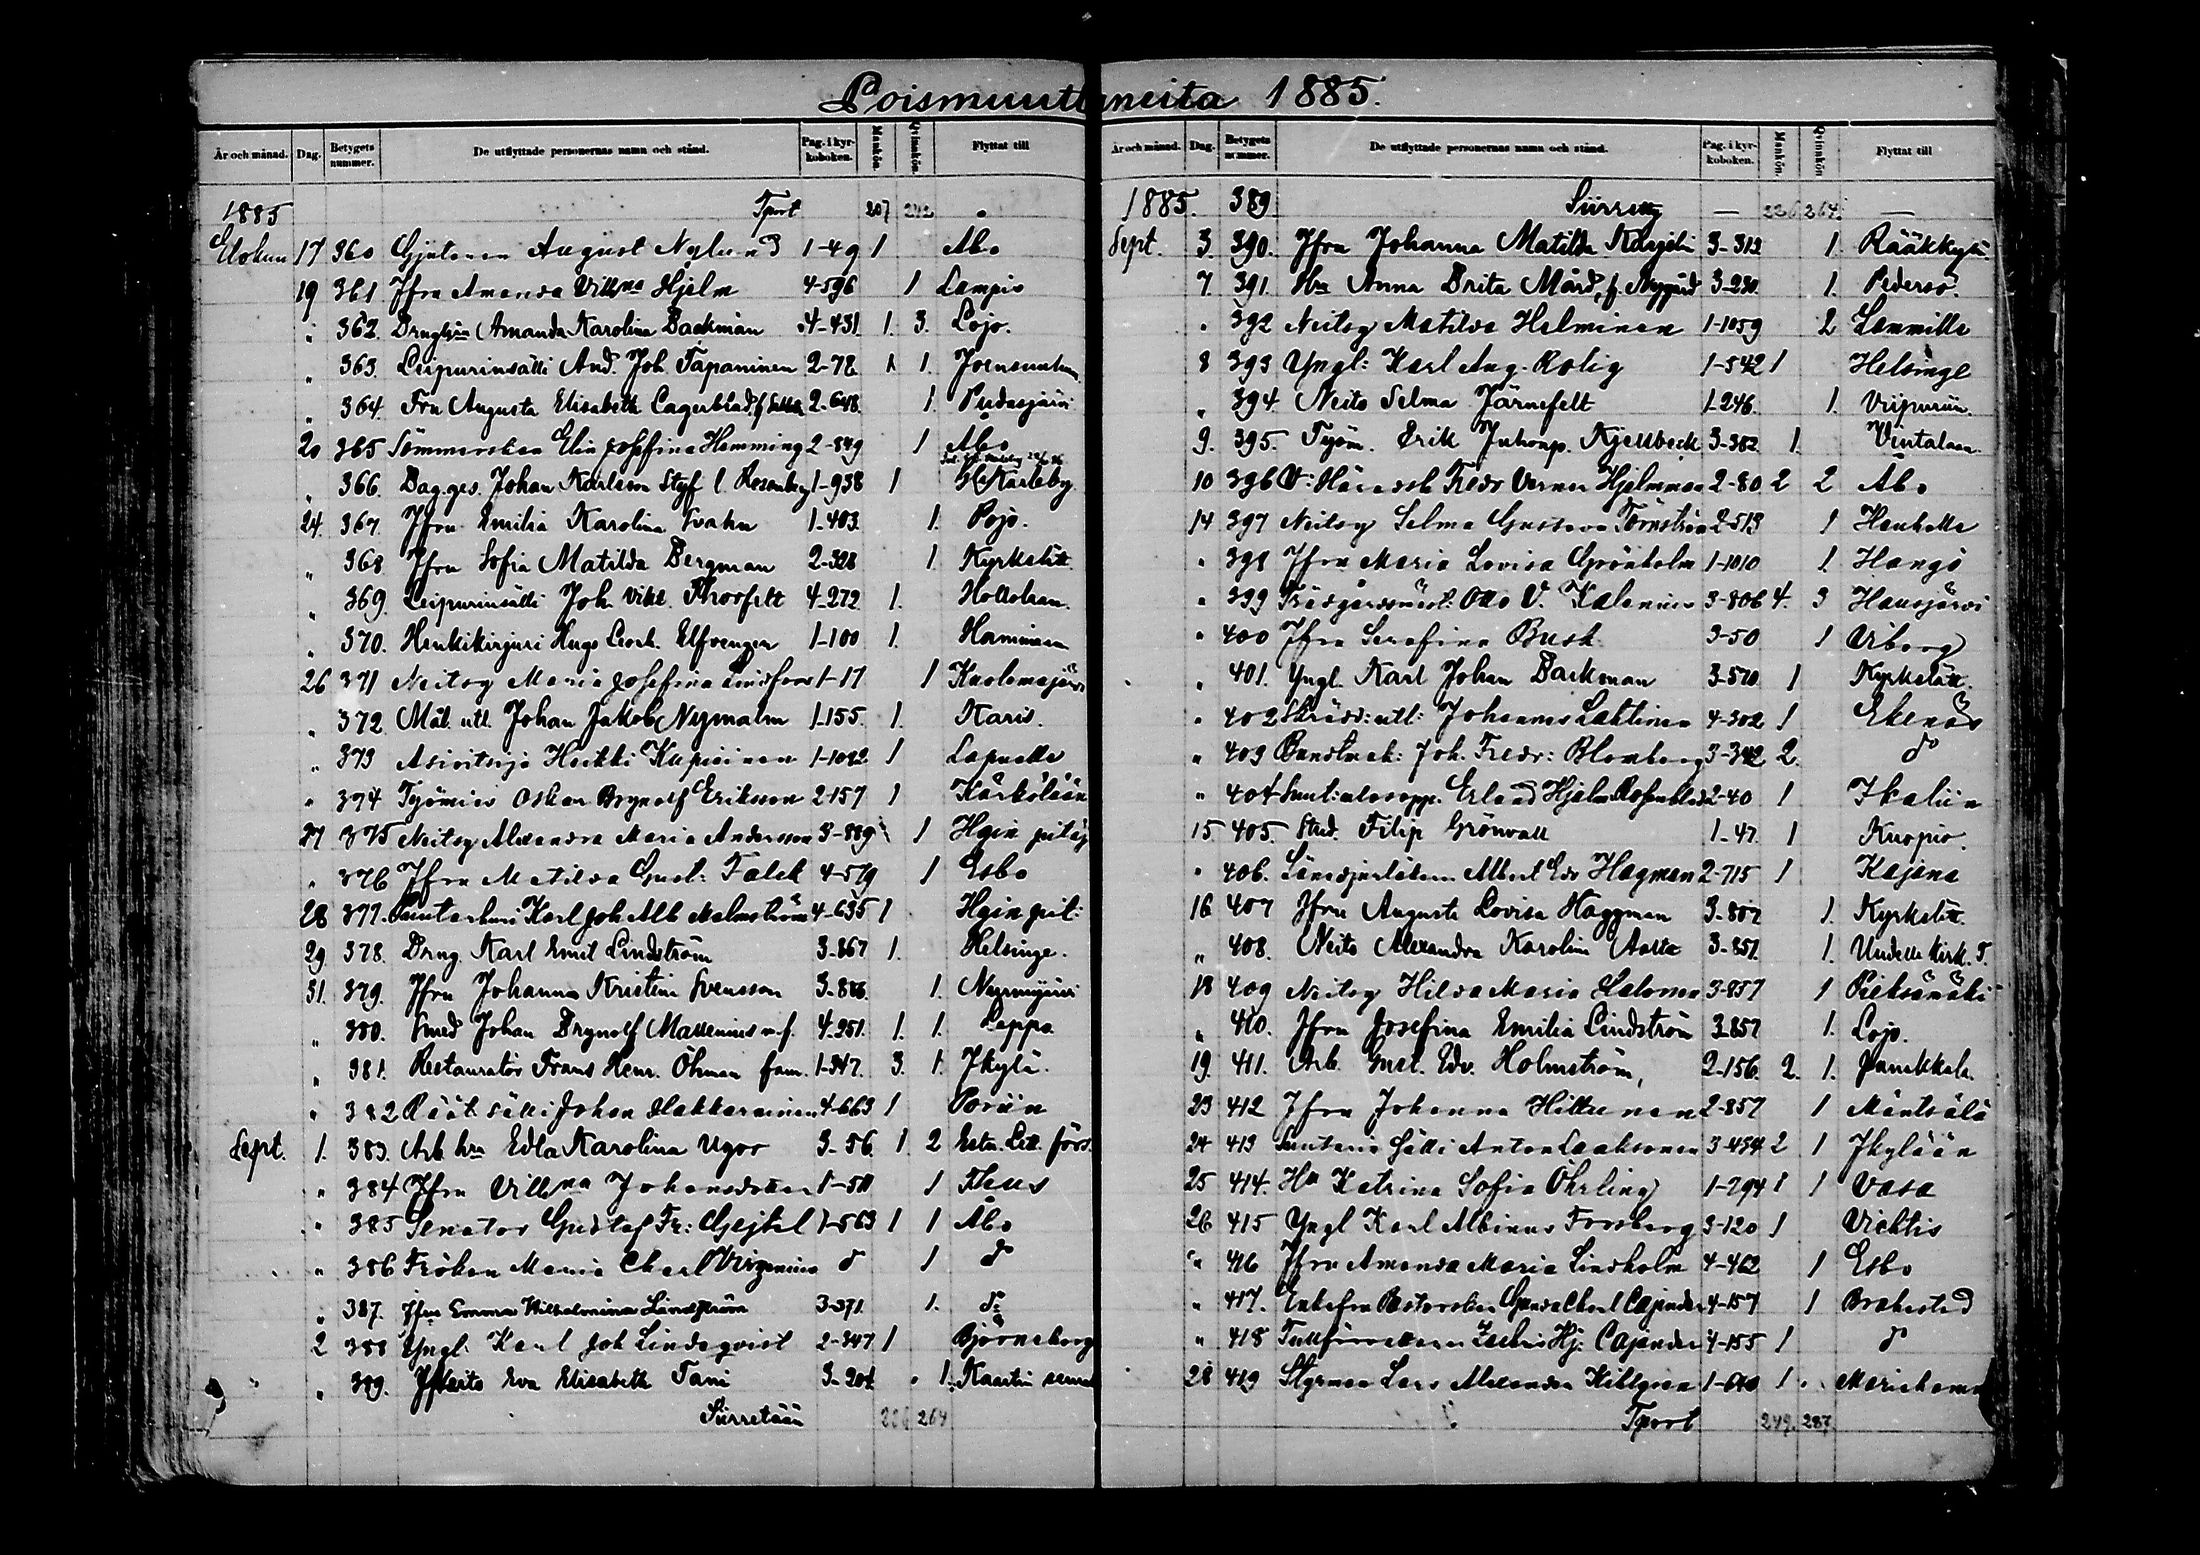 Poismuuttaneita 1885.
År och månad. Dag. Betygets nummer. De utflyttade personernas namn och stånd. Pag. i kyrkoboken. Mankön. Qvinkön. Flyttat till
1885 Tport 207 242
Elokuu 17 360 August Nylund 1-49 1 Åbo
19 361 Jfru Amanda Vilhna Hjelm 4-596 1 Lampis
" 362. Amanda Karolina Backman 4-431. 1. 3. Lojo.
" 363. Leipurinsälli And. Joh. Tapaninen 2-78. 1 1. Joensuuhun
" 364. Fru Augusta Elisabeth Lagerblad 2-648. 1. Pudasjärvi
20 365 Sömmerskan Elin Josefina Hemming 2-849 1 Åbo
" 366. Dag.ges. Johan Karlsson Styf l. Rosenberg 1-938 1 Karleby
24. 367. Jfru Emilia Karolina Svahn 1-403. 1. Pojo.
" 368 Jfru Sofia Matilda Bergman 2-328 1 Kyrkslätt
" 369. Leipurinsälli Joh. Vikt. Throsfelt 4-272 1. Hollolaan.
" 370. Henkikirjuri Hugo Leon. Elfvengren 1-100 1. Haminaan
26 371 Neitsy Maria Josefina Lindfors 1-17 1 Kuolemajärvi
" 372 Mål. utl. Johan Jakob Nymalm 1-155. 1. Karis.
" 373 Heikki Kupiainen 1-1092 1 Lapualle
" 374 Työmies Oskar Brynolf Eriksson 2-157 1 Kärkölään
27 375 Neitsy Alexandra Maria Andersson 3-889 1 Hgin pitäj
" 376 Jfru Matilda Gust: Falck 4-579 1 Esbo
28 377. Karl Joh Alb Malmström 4-635 1 Hgin pit:
29 378. Dräng. Karl Emil Lindström 3-867 1. Helsinge.
31. 379. Jfru Johanna Kristina Svensson 3-886. 1. Nurmijärvi
" 380. Smed Johan Brynolf Massenius m.f. 4-251. 1. 1. Loppo
" 381. Restauratör Frans Henr. Öhman fam. 1-347. 3. 1. Jkylä.
" 382 Räät sälli Johan Hakkarainen 4-663 1 Poriin
Sept. 1. 383. Arb. hru Edla Karolina Ugor 3-56. 1 2 förs.
" 384 Jfru Vilhna Johansdotter 1-511 1 Thus
" 385 Senator Gustaf Fr: 1-563 1 1 Åbo
" 386 Fröken Maria Charl Virzenius do 1 do
" 387. Jfru Emma Wilhelmina Lindström 3-371. 1. do
2 388 Yngl. Karl Joh Lindqvist 2-347 1 Björneborg
" 389. Neito Eva Elisabeth Tani 3-204. 1. Kaartin seurak
Siirretään 226 264
År och månad. Dag. Betygets nummer. De utflyttade personernas namn och stånd. Pag. i kyrkoboken. Mankön. Qvinkön. Flyttat till
1885. 389. Siirretty — 226 264. —
Sept. 3. 390. Jfru Johanna Matilda 3-312 1. Rääkkylä.
7. 391. Hru Anna Brita Mård, f. Nygård 3-230. 1. Pedersö.
" 392 Neitsy Matilda Helminen 1-1059 2 Lammilla
8 393 Yngl: Karl Aug. Rolig 1-542 1 Helsinge
" 394. Neito Selma Järnefelt 1-246. 1. Viipuriin.
9. 395. Työm. Erik Juhonp. Kjellbeck 3-382. 1. Vimtalaan
10 396 V: Häradsh Fredr Verner Hjelmman 2-80 2 2 Åbo
14 397 Neitsy Selma Gustava Törnström 2-513 1 Hauholle
" 398 Jfru Maria Lovisa Grönholm 1-1010 1. Hangö
" 399 Trädgårdsmäst: Otto V. Kalenius 3-806 4. 3 Hausjärvi
" 400 Jfru Serafina Busk 3-50 1 Viborg
" 401. Yngl. Karl Johan Backman 3-570 1 Kyrkslätt.
" 402 Skrädd: utl: Johannes Lahtinen 4-302 1 Ekenäs
" 403 Joh. Fredr: Blomberg 3-342 2. do
" 404 Erland Hjalm Rosenblad 2-40 1 Ikaliin
15 405. Stud. Filip Grönvall 1-47. 1 Kuopio.
" 406. Albert Edv Hagman 2-715 1 Kajana
16 407 Jfru Augusta Lovisa Häggman 3-807 1. Kyrkslätt.
" 408. Neito Alexandra Karolina Aalto 3-851. 1. Uudelle kirk. T.
18 409 Neitsy Hilda Maria Salonen 3-857 1 Pieksämäki
" 410. Jfru Josefina Emilia Lindström 3-857 1. Lojo.
19. 411. Arb. Gust. Edv. Holmström, 2-156. 2. 1. Janakkala.
23 412 Jfru Johanna Hiltunen 2-857 1 Mäntsälä
24 413 Suutarin Sälli Anton Laaksonen 3-454 2 1 Jkylään
25 414. Ha Katrina Sofia Öhrling 1-794 1 1 Vasa
26 415 Yngl Karl Albinus Forsberg 3-120 1 Vichtis
" 416 Jfru Amanda Maria Lindholm 4-462 1 Esbo
" 417. Enkefru Pastorskan Charl Cajander 4-157 1 Brahestad
" 418 Hj. Cajander 4-155 1 do
28 419 Styrman Lars Alexander Killgren 1-640 1 Mariehamn
Tport 249. 287.